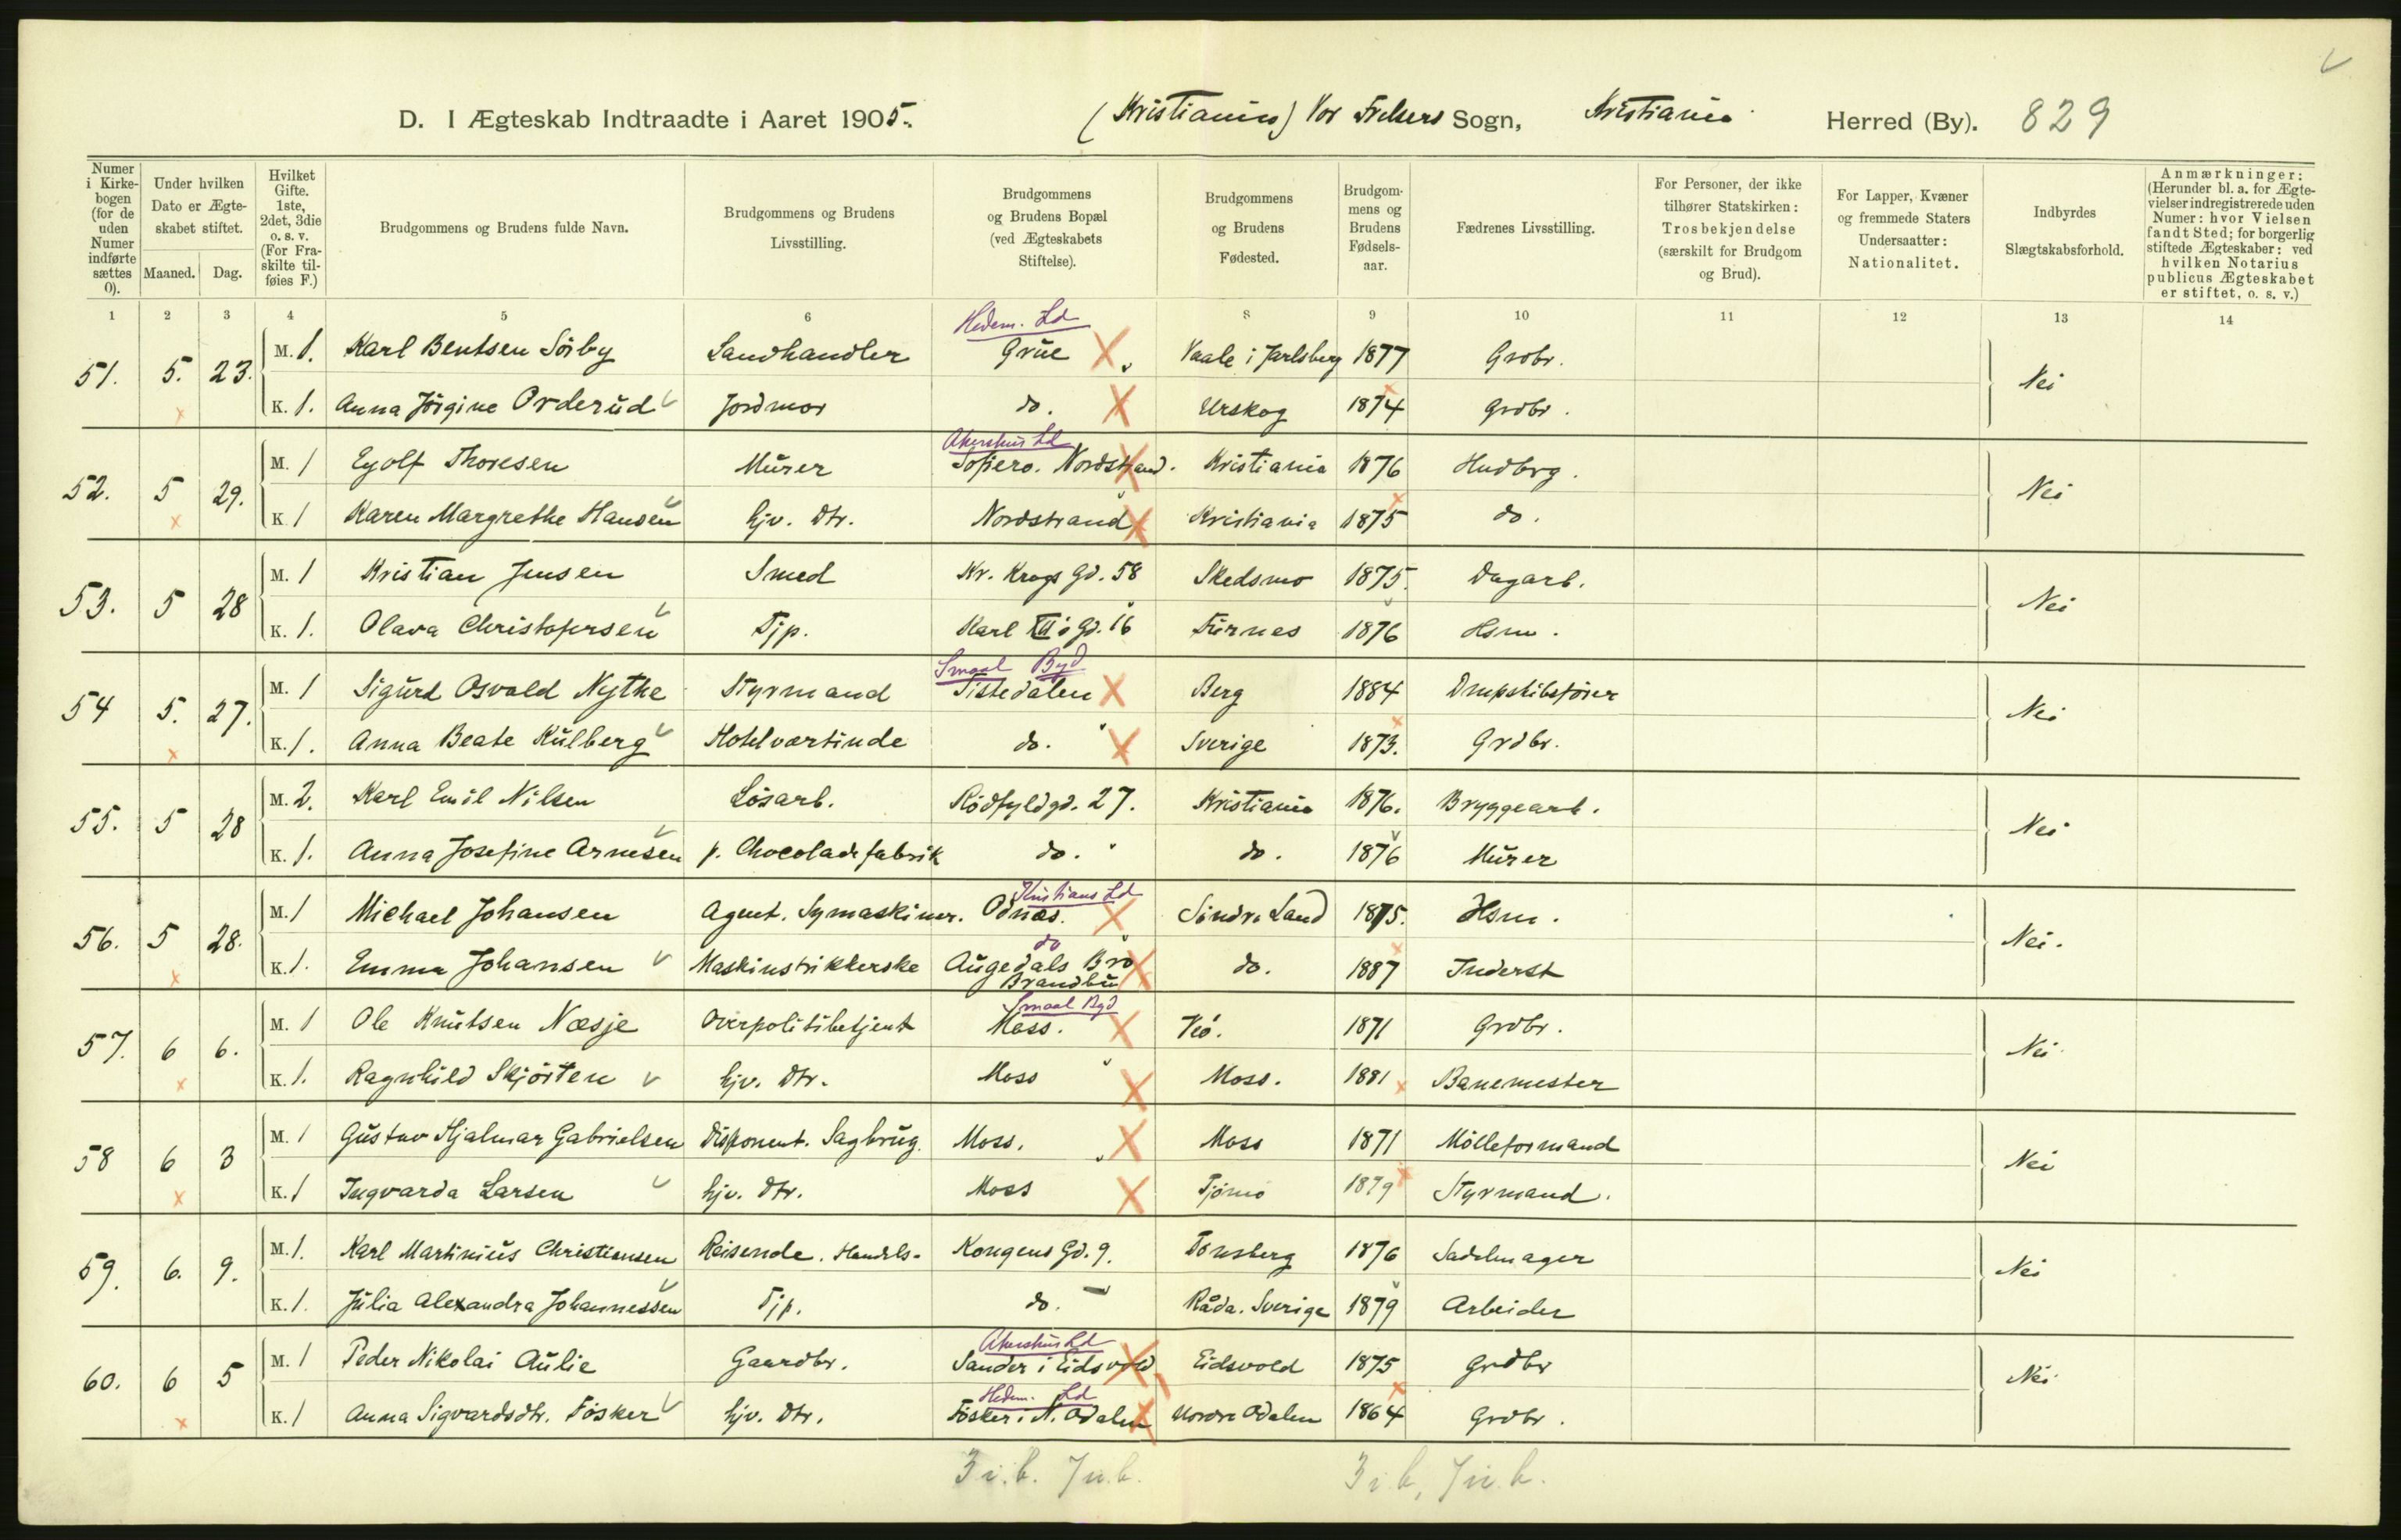 D. I Ægteskab Indtraadte i Aaret 1905. (Kristiania) Vor Frelsers Sogn, Kristiania Herred (By). 829
Numer i Kirkebogen (for de uden Numer indførte sættes 0).
Under hvilken Dato er Ægteskabet stiftet.
Maaned. Dag.
Hvilket Gifte. 1ste, 2det, 3die o. s. v. (For Fraskilte tilføies F.)
Brudgommens og Brudens fulde Navn.
Brudgommens og Brudens Livsstilling.
Brudgommens og Brudens Bopæl (ved Ægteskabets Stiftelse).
Brudgommens og Brudens Fødested.
Brudgommens og Brudens Fødselsaar.
Fædrenes Livsstilling.
For Personer, der ikke tilhører Statskirken: Trosbekjendelse (særskilt for Brudgom og Brud).
For Lapper, Kvæner og fremmede Staters Undersaatter: Nationalitet.
Indbyrdes Slægtskabsforhold.
Anmærkninger: (Herunder bl. a. for Ægtevielser indregistrerede uden Numer: hvor Vielsen fandt Sted; for borgerlig stiftede Ægteskaber: ved hvilken Notarius publicus Ægteskabet er stiftet, o. s. v.)
1 2 3 4 5 6 8 9 10 11 12 13 14
Hedem. Ld
51. 5. 23. M. 1. Karl Bentsen Sörby Landhandler Grue Vaale i Jarlsberg 1877 Grdbr. Nei
K. 1. Anna Jörgine Orderud Jordmor do. Urskog 1874 Grdbr.
Akershus Ld
52. 5 29. M. 1 Eyolf Thoresen Murer Sofiero. Nordstrand. Kristiania 1876 Hudbrg. Nei
K. 1 Karen Margrethe Hansen hjv. Dtr. Nordstrand Kristiania 1875 do.
53. 5 28 M. 1 Kristian Jensen Smed Kr. Krogs Gd. 58 Skedsmo 1875. Dagarb. Nei
K. 1. Olava Christofersen Tjp. Karl XII's Gd. 16 Furnes 1876 Hsm.
Smaal Byd
54 5. 27. M. 1 Sigurd Osvald Nythe Styrmand Tistedalen Berg 1884 Dmpskibsförer Nei
K. 1. Anna Beate Kulberg Hotelvartinde do. Sverige 1873. Grdbr.
55. 5 28 M. 2. Karl Emil Nilsen Lösarb. Rödfyldgd. 27. Kristiania 1876. Bryggearb. Nei
K. 1. Anna Josefine Arnesen p. Chocoladefabrik do. do. 1876 Murer
Kristians Ld
56. 5 28. M. 1 Michael Johansen Agent. Symaskiner. Odnæs. Söndre Land 1875. Hsm. Nei.
do
K. 1. Emma Johansen Maskinstrikkerske Augedals Bro Brandbu do. 1887 Inderst
Smaal Byd
57. 6 6. M. 1 Ole Knutsen Næsje Overpolitibetjent Moss. Veö. 1871 Grdbr. Nei
K. 1. Ragnhild Skjörten hjv. Dtr. Moss Moss. 1881 Banemester
58 6 3 M. 1 Gustav Hjalmar Gabrielsen Disponent. Sagbrug. Moss. Moss 1871 Mölleformand Nei
K. 1 Ingvarda Larsen hjv. Dtr. Moss Tjömö 1879 Styrmand.
59. 6. 9. M. 1. Karl Martinius Christiansen Reisende. Handels- Kongens Gd. 9. Tönsberg 1876 Sadelmager Nei
K. 1. Julia Alexandra Johannessen Tjp. do. Råda. Sverige 1879 Arbeider
Akershus Ld
60. 6 5 M. 1 Peder Nikolai Aulie Gaardbr. Sander i Eidsvold Eidsvold 1875 Grdbr Nei
Hedem. Ld
K. 1 Anna Sigvardsdtr. Fösker hjv. Dtr. Fösker i N. Odalen Nordre Odalen 1864 Grdbr.
3 i. b. 7 u. b. 3 i. b, 7 u. b.